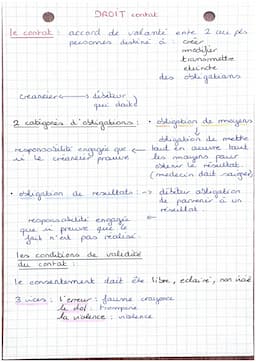 DROIT contrat
le contrat : accord de volonté entre 2 ou pls
personnes destiné à : créer
modifier
transmettre
éteindre
des obligations
creancier ← débiteur
qui doit
2 catégories d'obligations : • obligation de moyens
↓
obligation de mettre
responsabilité engagée que ← tout en œuvre tout
si le créancier prouve les moyens pour
obtenir le résultat.
(medecin doit soigner)
• obligation de resultats : → débiteur obligation
de parvenir à un
résultat
responsabilité engagée ←
que si preuve que le
fait n'est pas realisé.
les conditions de validité
du contrat :
le consentement doit être libre, eclairé, non vicié
3 vices : l'erreur : fausse croyance
le dol : tromperie
la violence : violence